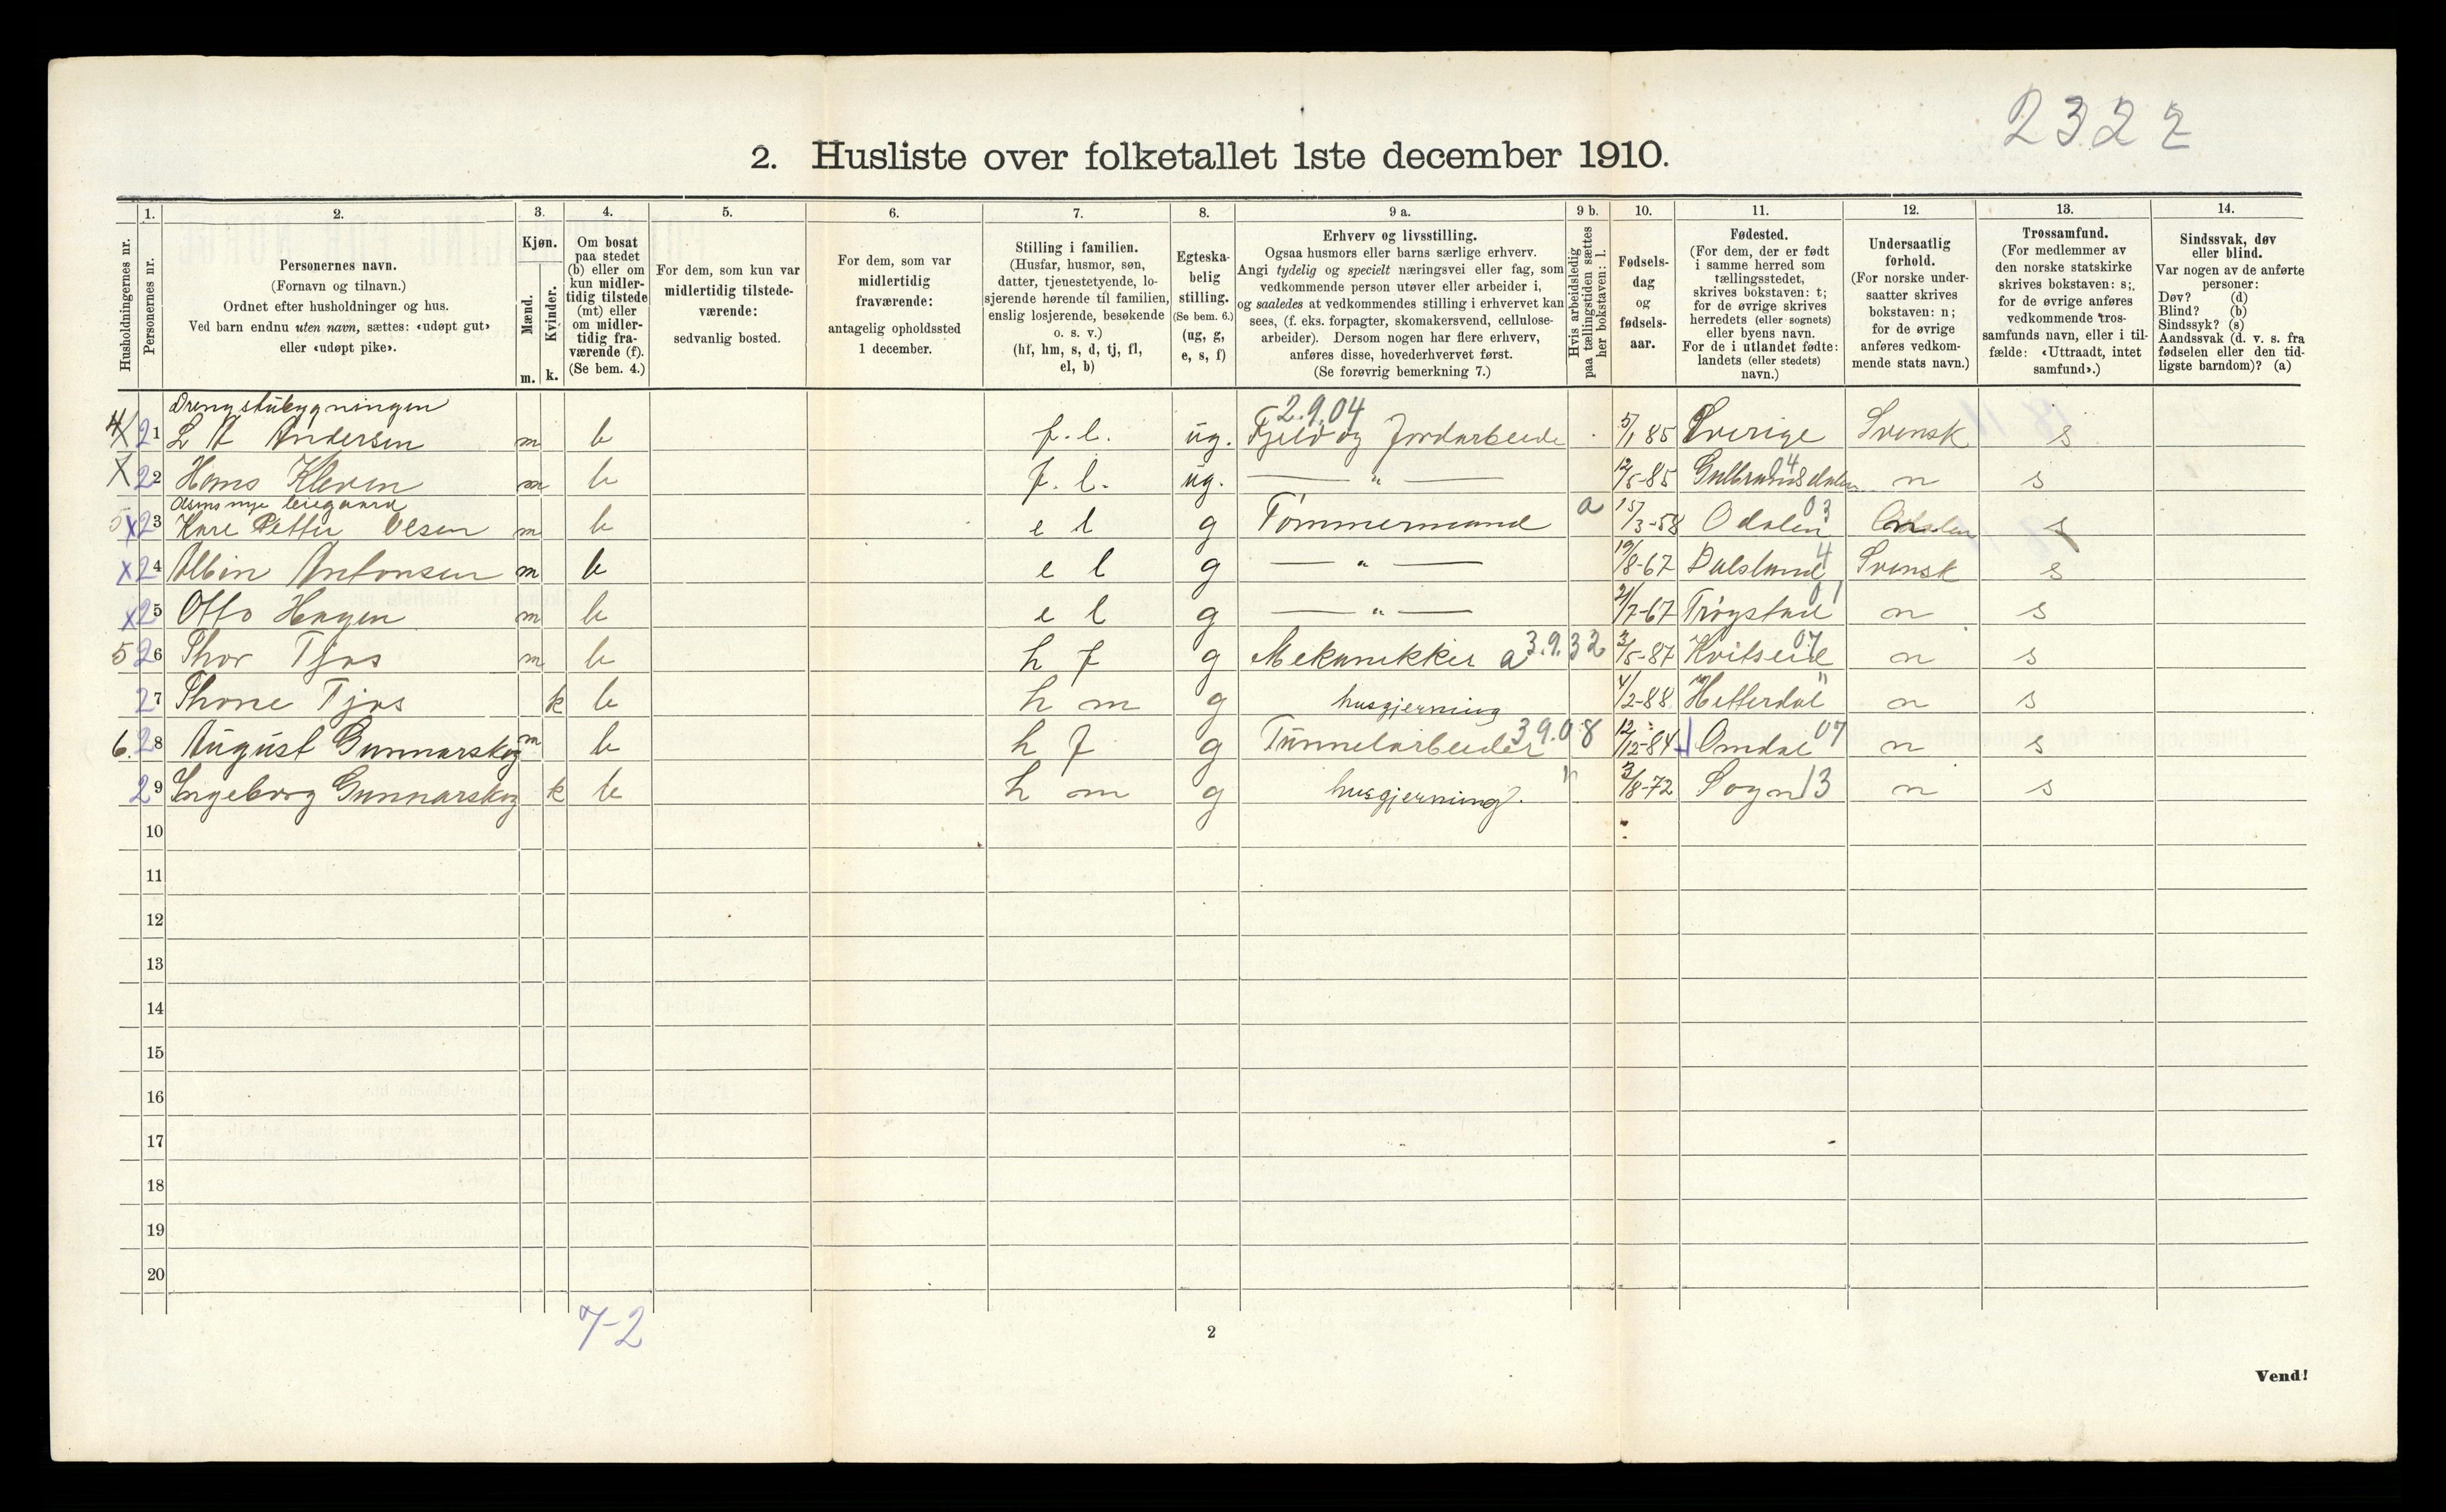 2322
2. Husliste over folketallet 1ste december 1910.
Husholdningernes nr.
1. Personernes nr.
2. Personernes navn.
(Fornavn og tilnavn.)
Ordnet efter husholdninger og hus.
Ved barn endnu uten navn, sættes: «udøpt gut»
eller «udøpt pike».
3. Kjøn.
Mænd. m.
Kvinder. k.
4. Om bosat
paa stedet
(b) eller om
kun midler-
tidig tilstede
(mt) eller
om midler-
tidig fra-
værende (f).
(Se bem. 4.)
5. For dem, som kun var
midlertidig tilstede-
værende:
sedvanlig bosted.
6. For dem, som var
midlertidig
fraværende:
antagelig opholdssted
1 december.
7. Stilling i familien.
(Husfar, husmor, søn,
datter, tjenestetyende, lo-
sjerende hørende til familien,
enslig losjerende, besøkende
o. s. v.)
(hf, hm, s, d, tj, fl,
el, b)
8. Egteska-
belig
stilling.
(Se bem. 6.)
(ug, g,
e, s, f)
9 a. Erhverv og livsstilling.
Ogsaa husmors eller barns særlige erhverv.
Angi tydelig og specielt næringsvei eller fag, som
vedkommende person utøver eller arbeider i,
og saaledes at vedkommendes stilling i erhvervet kan
sees, (f. eks. forpagter, skomakersvend, cellulose-
arbeider). Dersom nogen har flere erhverv,
anføres disse, hovederhvervet først.
(Se forøvrig bemerkning 7.)
9 b. Hvis arbeidsledig
paa tællingstiden sættes
her bokstaven: l.
10. Fødsels-
dag
og
fødsels-
aar.
11. Fødested.
(For dem, der er født
i samme herred som
tællingsstedet,
skrives bokstaven: t;
for de øvrige skrives
herredets (eller sognets)
eller byens navn.
For de i utlandet fødte:
landets (eller stedets)
navn.)
12. Undersaatlig
forhold.
(For norske under-
saatter skrives
bokstaven: n;
for de øvrige
anføres vedkom-
mende stats navn.)
13. Trossamfund.
(For medlemmer av
den norske statskirke
skrives bokstaven: s;
for de øvrige anføres
vedkommende tros-
samfunds navn, eller i til-
fælde: «Uttraadt, intet
samfund».)
14. Sindssvak, døv
eller blind.
Var nogen av de anførte
personer:
Døv? (d)
Blind? (b)
Sindssyk? (s)
Aandssvak (d. v. s. fra
fødselen eller den tid-
ligste barndom)? (a)
Drengstubygningen
2.9.04
4 21 L A Andersen m b f.l. ug. Fjeld og Jordarbeide 5/1 85 Sverige Svensk s
x 22 Hans Kleven m b f.l. ug. — " — 12/5-85 Gulbrandsdalen 04 n s
nye leiegaard
5 x 23 Kare Petter Olsen m b e l g Tømmermand a 15/3-58 Odalen 03 n s
x 24 Albin Antonsen m b e l g — " — 19/8-67 Dalsland 4 Svensk s
x 25 Otto Hagen m b e l g — " — 21/7-67 Trøgstad 01 n s
5 26 Thor Tjos m b h f g Mekanikker a 3.9.32 3/5-87 Kvitseid 07 n s
27 Thone Tjos k b h m g husgjerning 4/2-88 Hitterdal " n s
6. 28 August Gunnarskog m b h f g Tunnelarbeider 39.08 12/12-84 Omdal 07 n s
29 Ingeborg Gunnarskog k b h m g husgjerning. " 3/8-72 Sogn 13 n s
10
11
12
13
14
15
16
17
18
19
20
7-2
2
Vend!